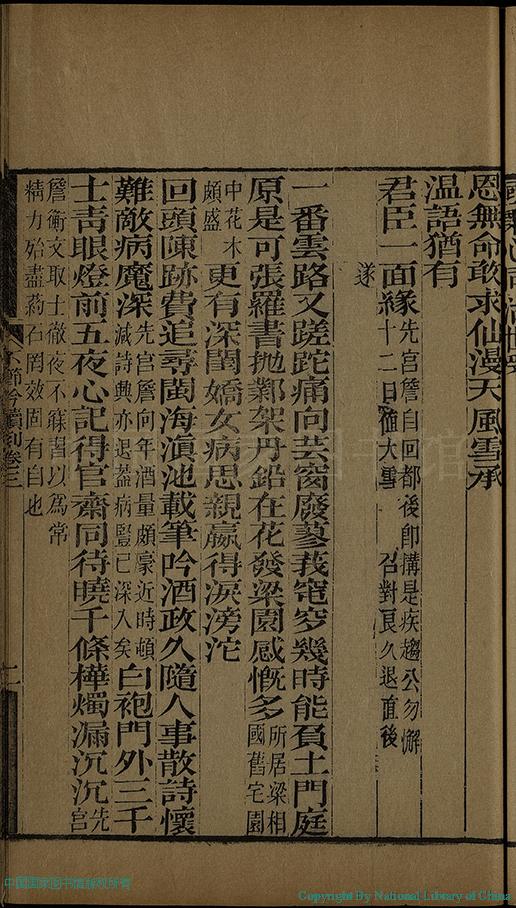 恩無命敢求仙漫天風雪承
温語猶有
君臣一面緣先宮詹自回都後即搆是疾趨公勿懈十二日值大雪　召對良久退直後
遂
一番雲路又蹉跎痛向芸窗廢蓼莪窀穸幾時能負土門庭
原是可張羅書拋鄴架丹鉛在花發梁園感慨多所居梁相國舊宅園
中花木頗盛更有深閨嬌女病思親贏得淚滂沱
回頭陳跡費追尋閩海滇池載筆吟酒政久隨人事散詩懷
難敵病魔深先宮詹向年酒量頗豪近時頓減詩興亦退蓋病豎已深入矣白袍門外三千
士青眼燈前五夜心記得官齋同待曉千條樺燭漏沉沉先宮
詹衡文取士徹夜不寐習以為常
精力殆盡藥石罔效固有自也
二
中国国家图书馆版权所有
Copyright By National Library of China